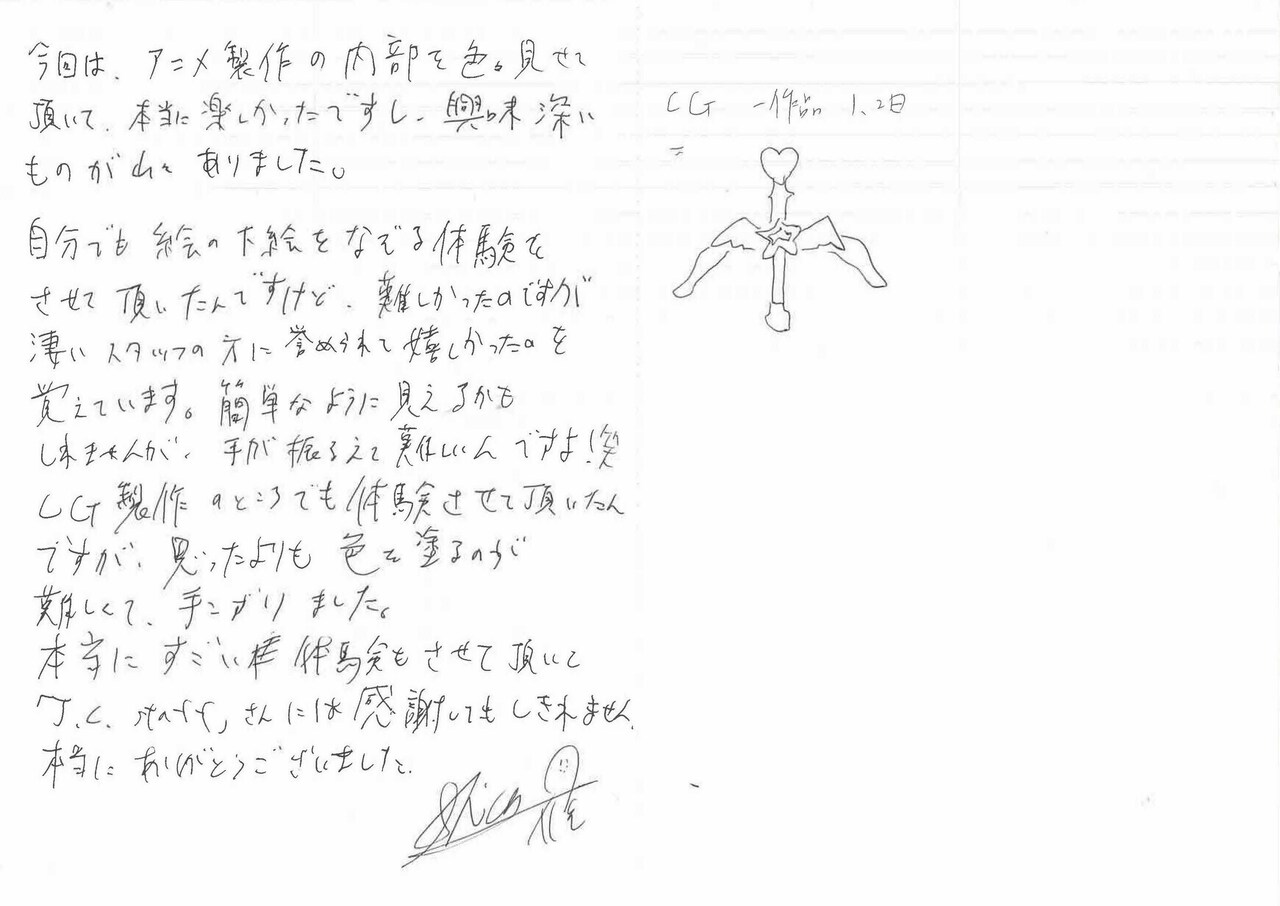 今回は、アニメ製作の内部を色々見せて
頂いて、本当に楽しかったですし、興味深い
ものが山々ありました。
自分でも絵の下絵をなぞる体験を
させて頂いたんですけど、難しかったのですが
凄いスタッフの方に誉められて嬉しかったのを
覚えています。簡単なように見えるかも
しれませんが、手が振るえて難しいんですよ!笑
CG製作のところでも体験させて頂いたん
ですが、思ったよりも色を塗るのが
難しくて、手こずりました。
本当にすごい体験をさせて頂いて
J.C.staffさんには感謝してもしきれません。
本当にありがとうございました。
CG 一作品 1、2日